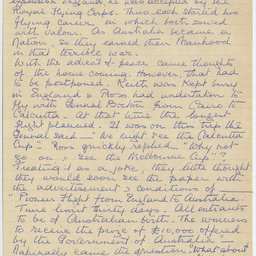 expansion England he was accepted by the
Royal Flying Corps. Thus each started his
flying career, in which both served
with valour. As Australia became a
Nation, so they earned their Manhood
in that terrible war.
With the advent of peace came thoughts
of the home-coming. However, that had
to be postponed. Keith was kept busy
in England & Ross had undertaken to
fly with General Borton from Cairo to
Calcutta. At that time the longest
flight planned. It was on this trip the
General said - "we might see the Calcutta
Cup". Ross quickly replied - "Why not
go on & see the Melbourne Cup"?
Treating it as a joke, they little thought
they would soon see the paper with
the advertisement & conditions of
"Pioneer Flight from England to Australia.
Time limit thirty days. All entrants
to be of Australian birth. The winners
to receive the prize of £10,000 offered
by the Government of Australia"
Naturally came the question "What about